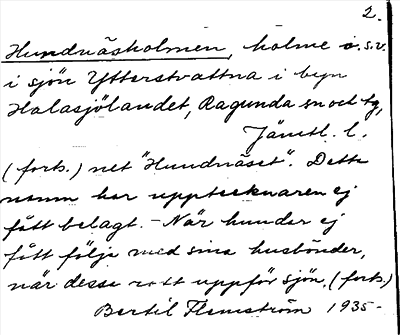 2.
Hundnäsholmen, holme i s.v.
i sjön Ytterstvattna i byn
Halasjölandet, Ragunda sn och tg,
Jämtl. l.
(forts.) net "Hundnäset". Detta
namn har upptecknaren ej
fått belagt. - När hundar ej
fått följa med sina husbönder,
när dessa rott uppför sjön, (forts.)
Bertil Flemström 1935-